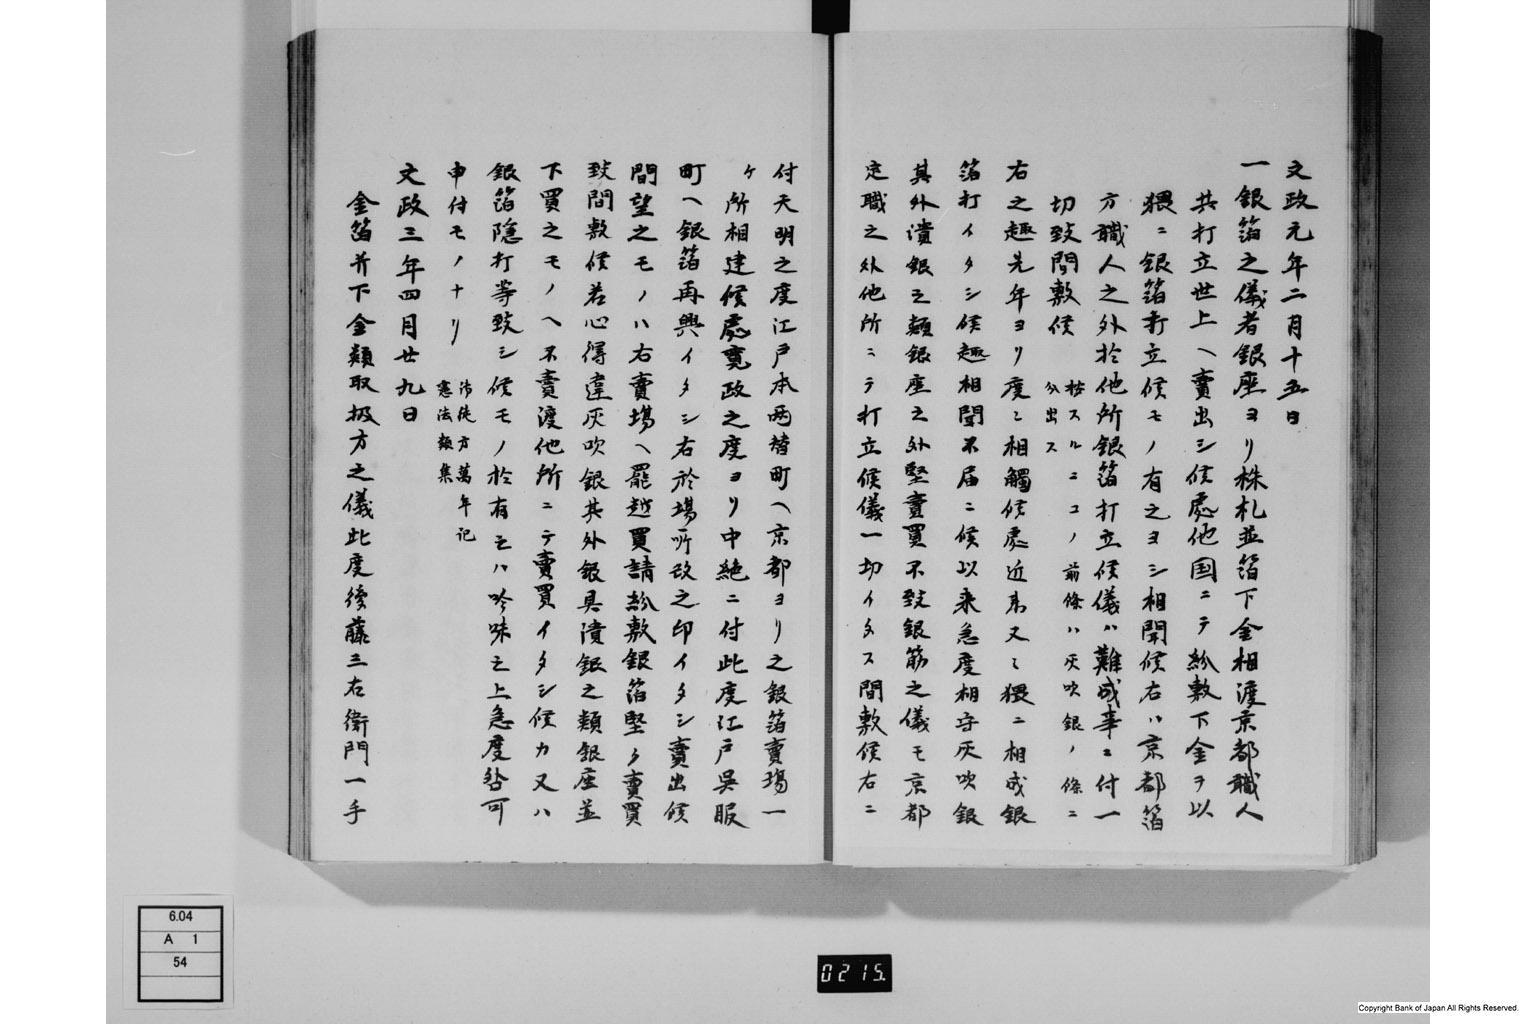 文政元年二月十五日
一銀箔之儀者銀座ヨリ株札並箔下金相渡京都職人
共打立世上ヘ賣出シ候處他国ニテ紛敷下金ヲ以
猥ニ銀箔打立候モノ有之ヨシ相聞候右ハ京都箔
方職人之外於他所銀箔打立候儀ハ難成事ニ付一
切致間敷候
按スルニコノ前條ハ灰吹銀ノ條ニ
分出ス
右之趣先年ヨリ度々相觸候處近来又々猥ニ相成銀
箔打イタシ候趣相聞不届ニ候以来急度相守灰吹銀
其外潰銀之類銀座之外堅賣買不致銀筋之儀モ京都
定職之外他所ニテ打立候儀一切イタス間敷候右ニ
付天明之度江戸本両替町ヘ京都ヨリ之銀箔賣場一
ケ所相建候處寛政之度ヨリ中絶ニ付此度江戸呉服
町ヘ銀箔再興イタシ右於場所改之印イタシ賣出候
間望之モノハ右賣場ヘ罷越買請紛敷銀箔堅ク賣買
致間敷候若心得違灰吹銀其外銀具潰銀之類銀座並
下買之モノヘ不賣渡他所ニテ賣買イタシ候カ又ハ
銀箔隠打等致シ候モノ於有之ハ吟味之上急度咎可
申付モノナリ
市徒方萬年記
憲法類集
文政三年四月廿九日
金箔并下金類取扱方之儀此度後藤三右衛門一手
6.04
A 1
54
0215.
Copyright Bank of Japan All Rights Reserved.